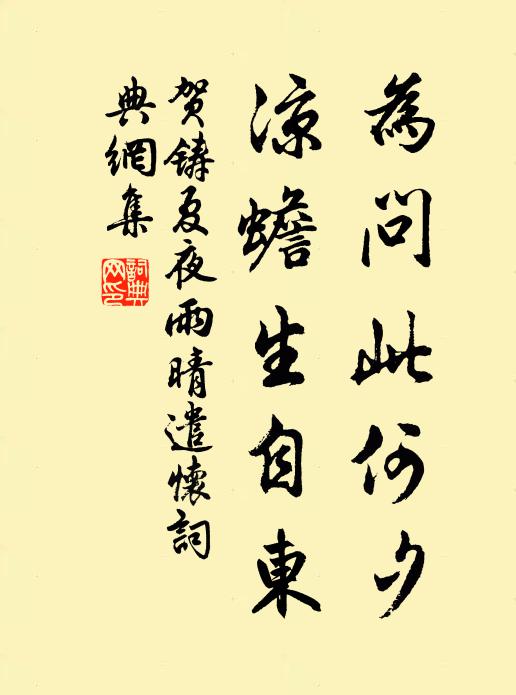 為問此何夕
涼蟾生自東
贺鑄夏夜雨晴遣懷詞
典網集
詞典
网印